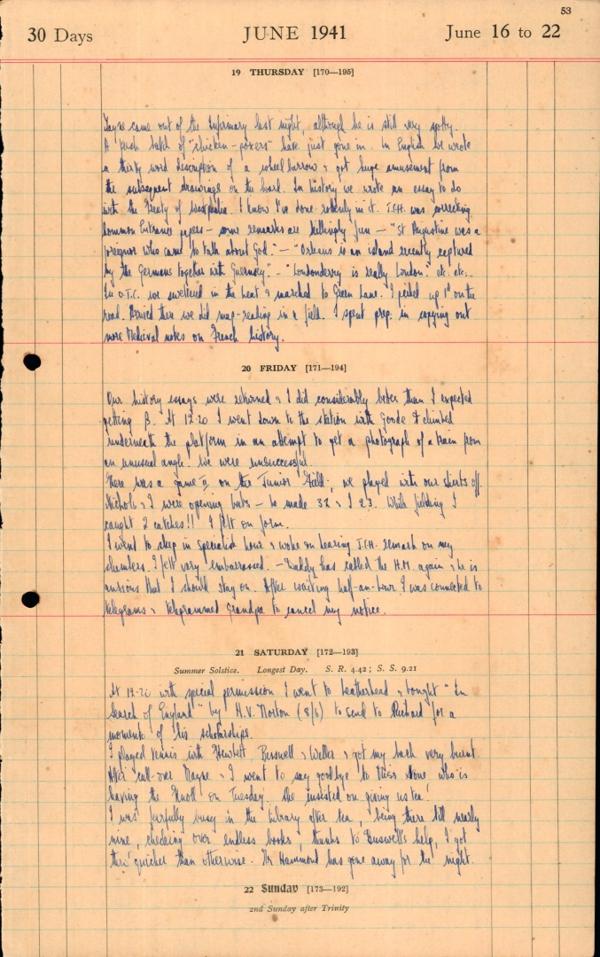 53
30 Days JUNE 1941 June 16 to 22
19 THURSDAY [170—195]
came out of the Infirmary last night, although he is still very spotty.
A fresh batch of "chicken-poxers" have just gone in. In English we wrote
a thirty word description of a wheelbarrow & got huge amusement from
the subsequent drawings on the board. In history we wrote an essay to do
with the Treaty of Westphalia. I know I've done rottenly in it. J.H. was correcting
Common Entrance papers — some remarks are killingly funny — "St Augustine was a
foreigner who came to talk about God." — "Orleans is an island recently captured
by the Germans together with Guernsey." — "Londonderry is really London." etc. etc..
In O.T.C. we sweltered in the heat & marched to Green Lane. I picked up 1ᵈ on the
road. Arrived there we did map-reading in a field. I spent prep. in copying out
more Medieval notes on French history.
20 FRIDAY [171—194]
Our history essays were returned & I did considerably better than I expected
getting β. At 12.20 I went down to the station with Goode & climbed
underneath the platform in an attempt to get a photograph of a train from
an unusual angle. We were unsuccessful.
There was a game on the Junior Field; we played with our shirts off.
Nichols & I were opening bats — he made 32 & I 23. While fielding I
caught 2 catches!! I felt on form.
I went to sleep in specialist hour & woke on hearing J.H. remark on my
slumbers. I felt very embarrassed. — Daddy has called the H.M. again & he is
anxious that I should stay on. After waiting half-an-hour I was connected to
telegrams & telegrammed Grandpa to cancel my notice.
21 SATURDAY [172—193]
Summer Solstice. Longest Day. S. R. 4.42; S. S. 9.21
At 12.20 with special permission I went to Leatherhead & bought "In
Search of England" by H.V. Morton (8/6) to send to Richard for a
momento of his scholarships.
I played tennis with Hewlett, Buswell & Weller & got my back very burnt.
After call-over Mayne & I went to say goodbye to Miss who is
leaving the Knoll on Tuesday. She insisted on giving us tea!
I was fearfully busy in the Library after tea, being there till nearly
nine, checking over endless books, thanks to Buswell's help, I got
thro' quicker than otherwise. Mr Hammond has gone away for the night.
22 Sunday [173—192]
2nd Sunday after Trinity